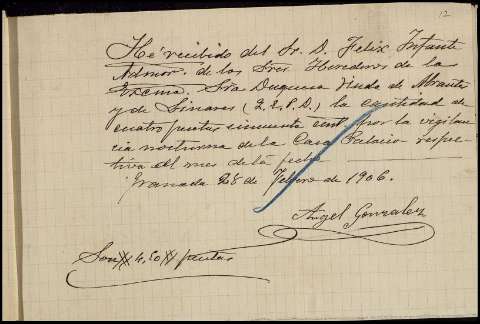 12
Hé recibido del Sr. D. Felix Infante
Admor. de los Sres Herederos de la
Excma. Sra Duquesa Viuda de Abrantes
y de Linares (Q.E.P.D.) la cantidad de
cuatro pesetas cincuenta cent. por la vigilan
cia nocturna de la Casa Palacio respec
tiva al mes de la fecha
Granada 28 de Febrero de 1906.
Angel Gonzalez
Son 4,50 pesetas